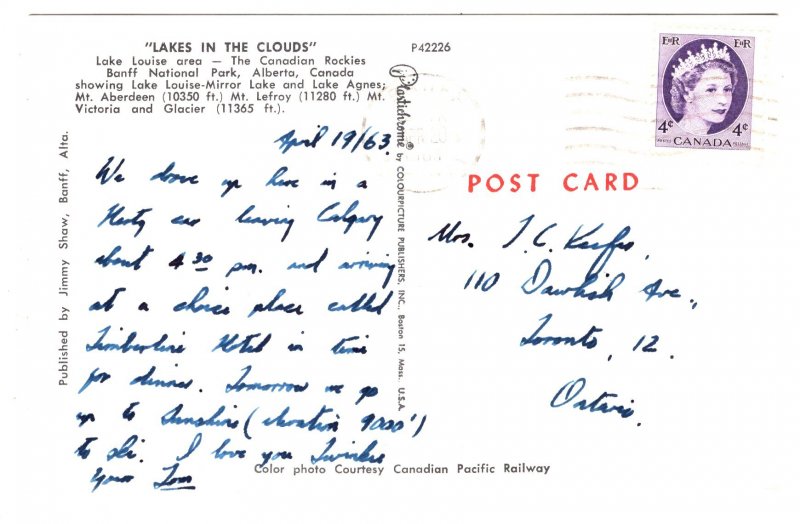 "LAKES IN THE CLOUDS"
Lake Louise area — The Canadian Rockies
Banff National Park, Alberta, Canada
showing Lake Louise-Mirror Lake and Lake Agnes;
Mt. Aberdeen (10350 ft.) Mt. Lefroy (11280 ft.) Mt.
Victoria and Glacier (11365 ft.).
P42226
Published by Jimmy Shaw, Banff, Alta.
Plastichrome® by COLOURPICTURE PUBLISHERS, INC., Boston 15, Mass. U.S.A.
April 19/63.
We drove up here in a
Hertz car leaving Calgary
about 4 30 pm. and arriving
at a choice place called
Timberline Hotel in time
for dinner. Tomorrow we go
up to Sunshine (elevation 9000')
to ski. I love you Twinkie
Your Tom
EIIR EIIR
4¢ 4¢
CANADA
POSTES POSTAGE
POST CARD
Mrs. J. C.
110 Dawlish Ave.,
Toronto, 12.
Ontario.
Color photo Courtesy Canadian Pacific Railway